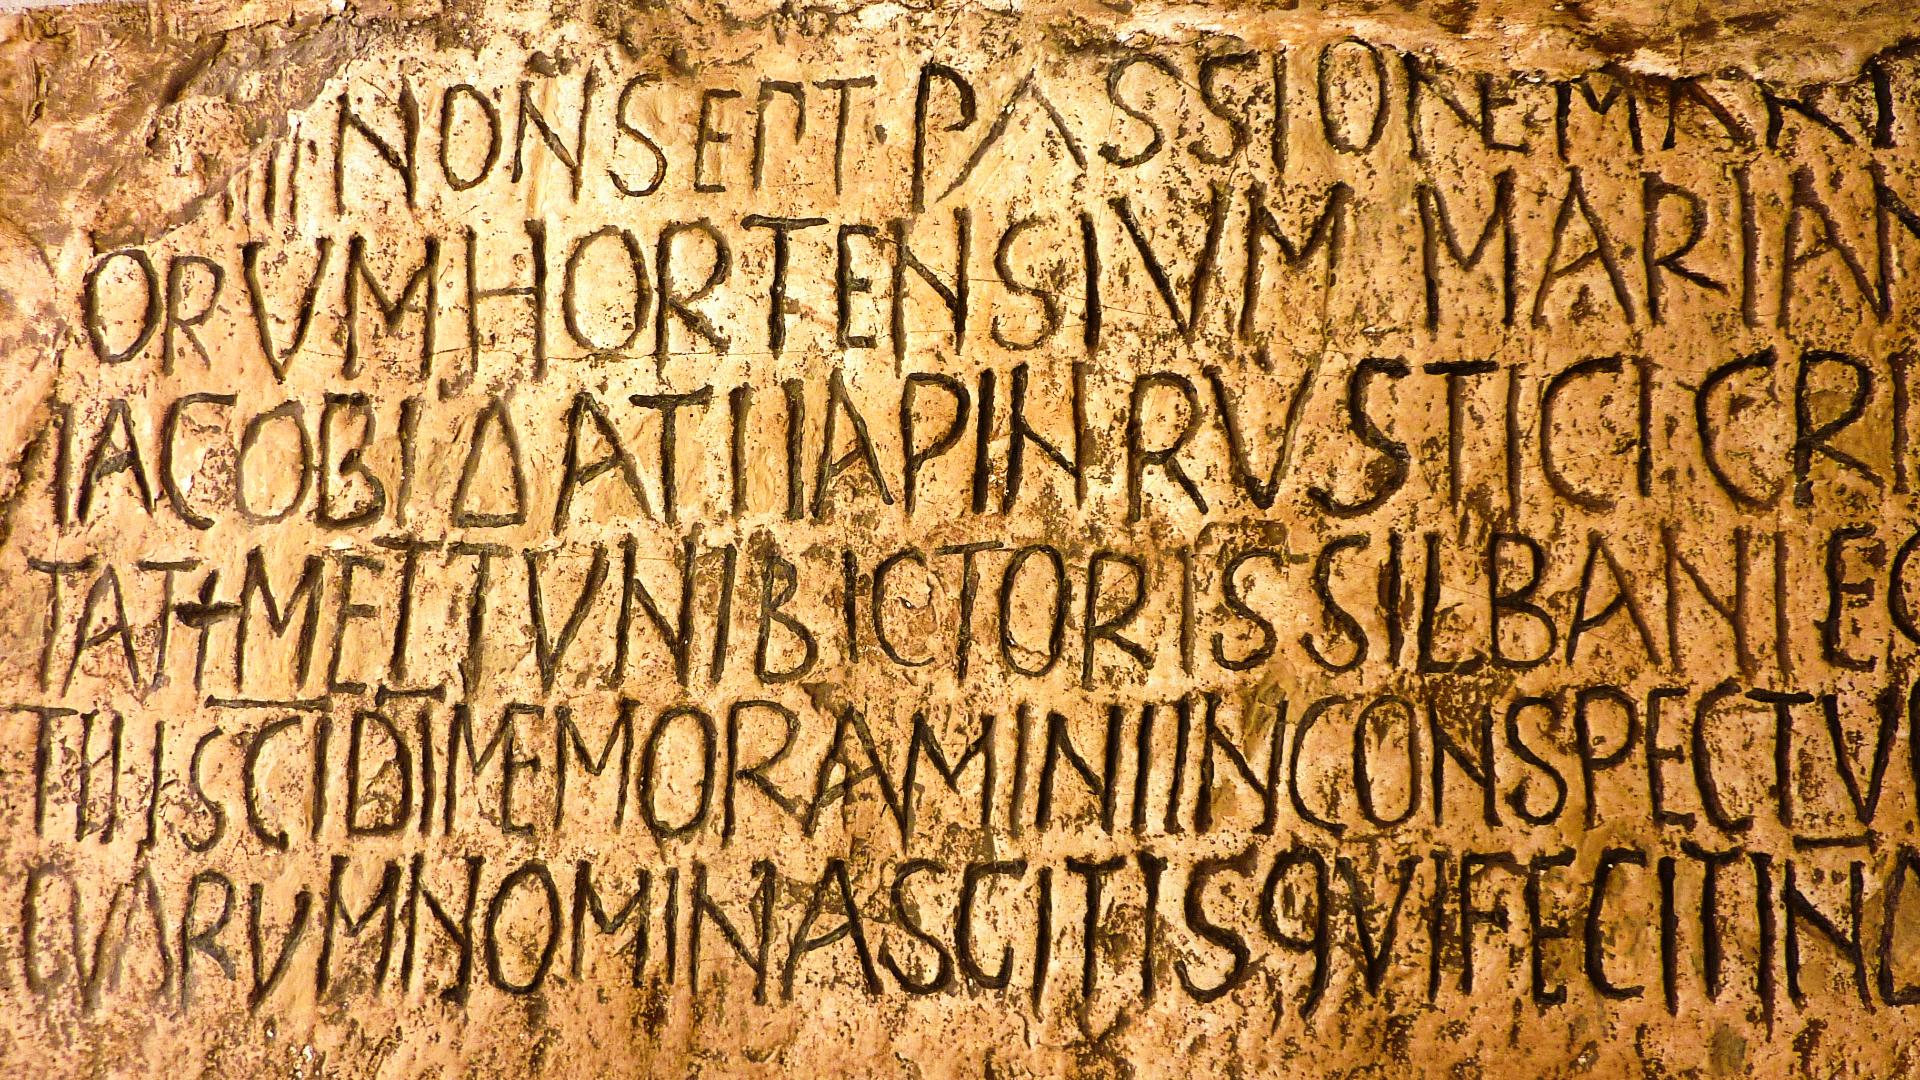 IIII NON SEPT · PASSIONE MARTY
ORVM HORTENSIVM MARIAN
IACOBI DATI IAPIN RVSTICI CRI
TAT+METTVNI BICTORIS SILBANI EG
TII SCI DI MEMORAMINI IN CONSPECTV
QVARVM NOMINA SCITIS QVI FECIT IND